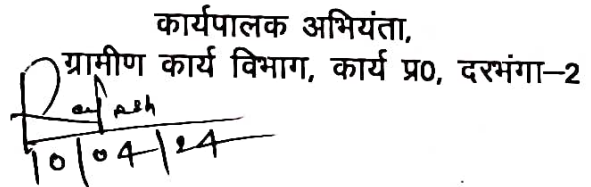 कार्यपालक अभियंता,
ग्रामीण कार्य विभाग, कार्य प्र0, दरभंगा–2
10/04/24